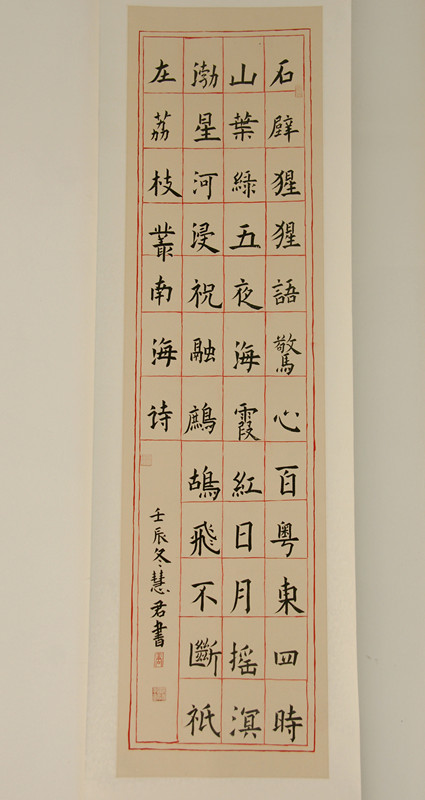 石壁猩猩語驚心百粤東四時
山葉綠五夜海霞紅日月摇溟
渤星河浸祝融鷓鴣飛不斷祇
在荔枝叢南海诗
壬辰冬慧君書